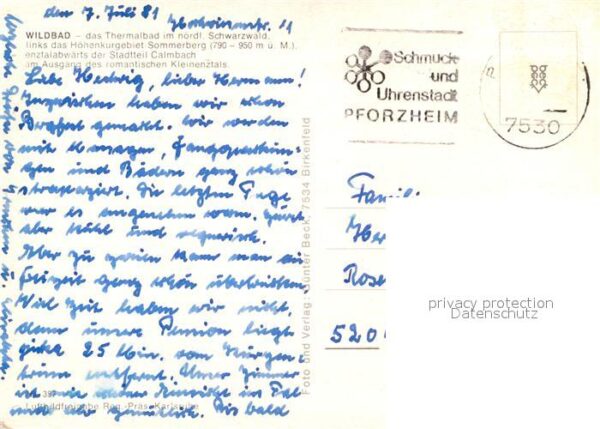 den 7. Juli 81
WILDBAD – das Thermalbad im nördl. Schwarzwald,
links das Höhenkurgebiet Sommerberg (790 – 950 m ü. M.)
enztalabwärts der Stadtteil Calmbach
am Ausgang des romantischen Kleinenztals.
Liebe Hedwig, lieber Hermann!
Inzwischen haben wir schon
Bergfest gemacht. Wir werden
mit Massagen,
und Bädern ganz schön
strapaziert. Die letzten Tage
war es angenehm warm, zuerst
aber kühl und regnerisch.
Aber zu zweien kann man die
Freizeit ganz schön überbrücken.
Viel Zeit haben wir nicht,
denn unsere Pension liegt
zirka 25 Min. vom Kurzen-
trum entfernt. Unser Zimmer
ist mit schöner Aussicht ins Tal
und sehr gemütlich. Bis bald
Herzliche Grüße von
Luftbildfreigabe Reg.-Präs. Karlsruhe
Foto und Verlag: Günter Beck, 7534 Birkenfeld
Schmuck-
und
Uhrenstadt
PFORZHEIM
7530
Famil
Her
Rose
520
privacy protection
Datenschutz